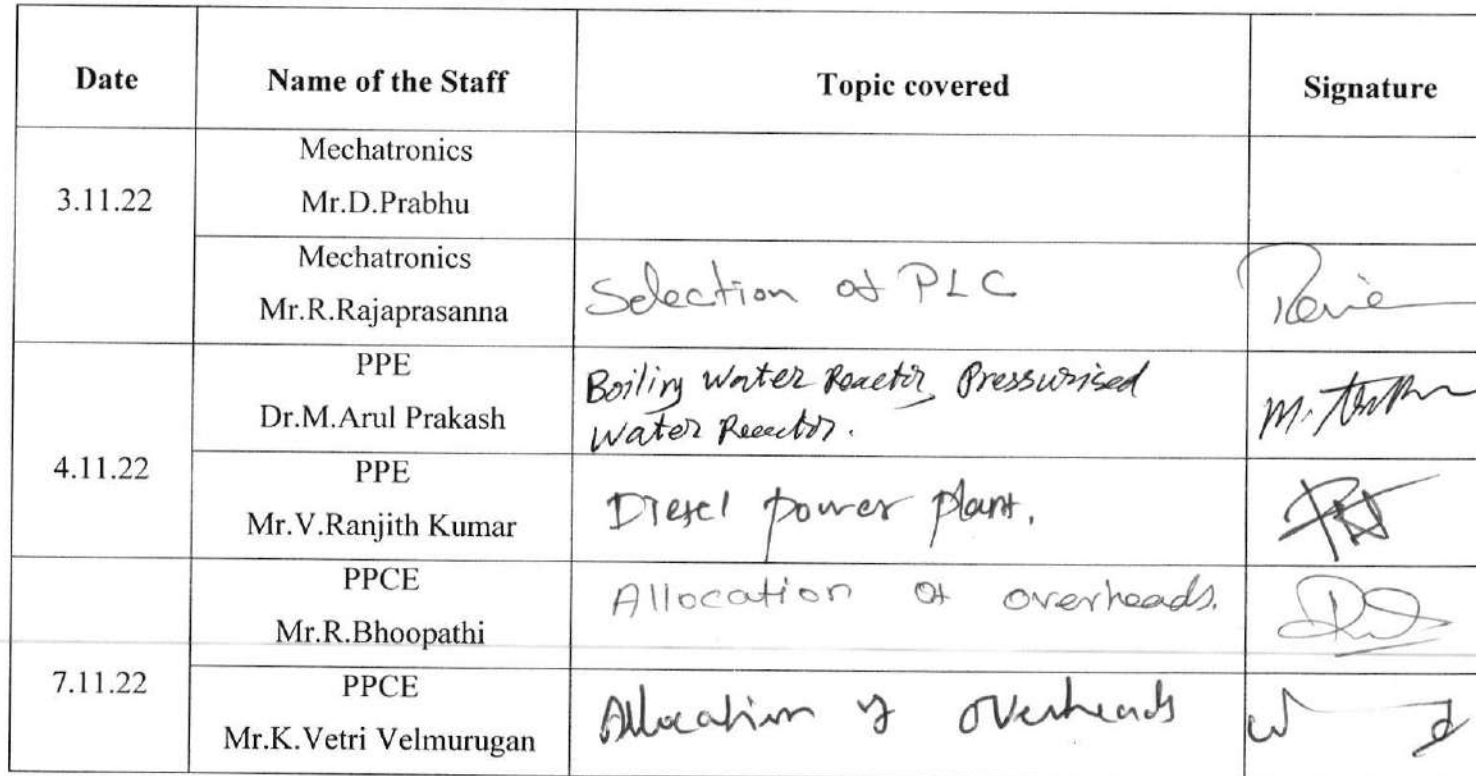 Date Name of the Staff Topic covered Signature
Mechatronics
3.11.22 Mr.D.Prabhu
Mechatronics
Mr.R.Rajaprasanna Selection of PLC
PPE
Dr.M.Arul Prakash Boiling Water Reactor, Pressurised
Water Reactor.
4.11.22
PPE
Mr.V.Ranjith Kumar Diesel power plant.
PPCE
Mr.R.Bhoopathi Allocation of overheads.
7.11.22
PPCE
Mr.K.Vetri Velmurugan Allocation of overheads